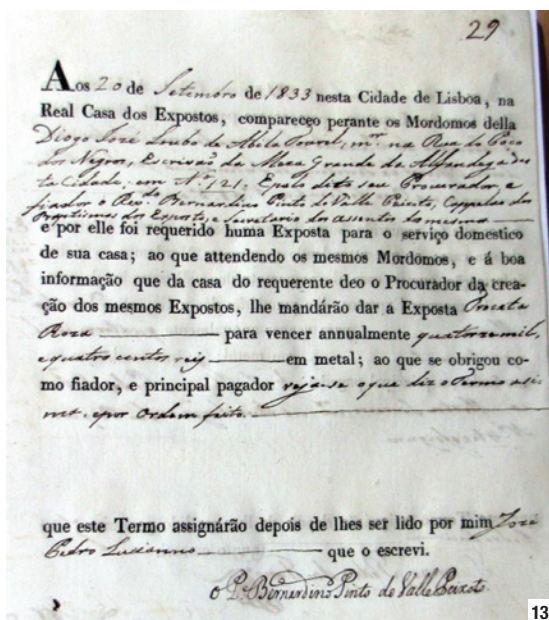 29
Aos 20 de Setembro de 1833 nesta Cidade de Lisboa, na
Real Casa dos Expostos, compareceo perante os Mordomos della
Diogo José de na Rua do Poço
dos Negros, Escrivão da Meza Grande da Alfandega des
ta Cidade, em Nº 121. Epelo dito seu Procurador, e
fiador o Revdo. Bernardino Pinto de Valle Peixoto, Cappelão dos
Baptismos dos Expostos, e Secretario dos assentos do mesmo
e por elle foi requerido huma Exposta para o serviço domestico
de sua casa; ao que attendendo os mesmos Mordomos, e á boa
informação que da casa do requerente deo o Procurador da crea-
ção dos mesmos Expostos, lhe mandárão dar a Exposta
Roza para vencer annualmente quatorze mil,
e quatro centos reis em metal; ao que se obrigou co-
mo fiador, e principal pagador veja-se o que diz o Termo
e por Ordem feito.
que este Termo assignárão depois de lhes ser lido por mim José
Pedro Lucianno que o escrevi.
O Pe. Bernardino Pinto de Valle Peixoto.
13